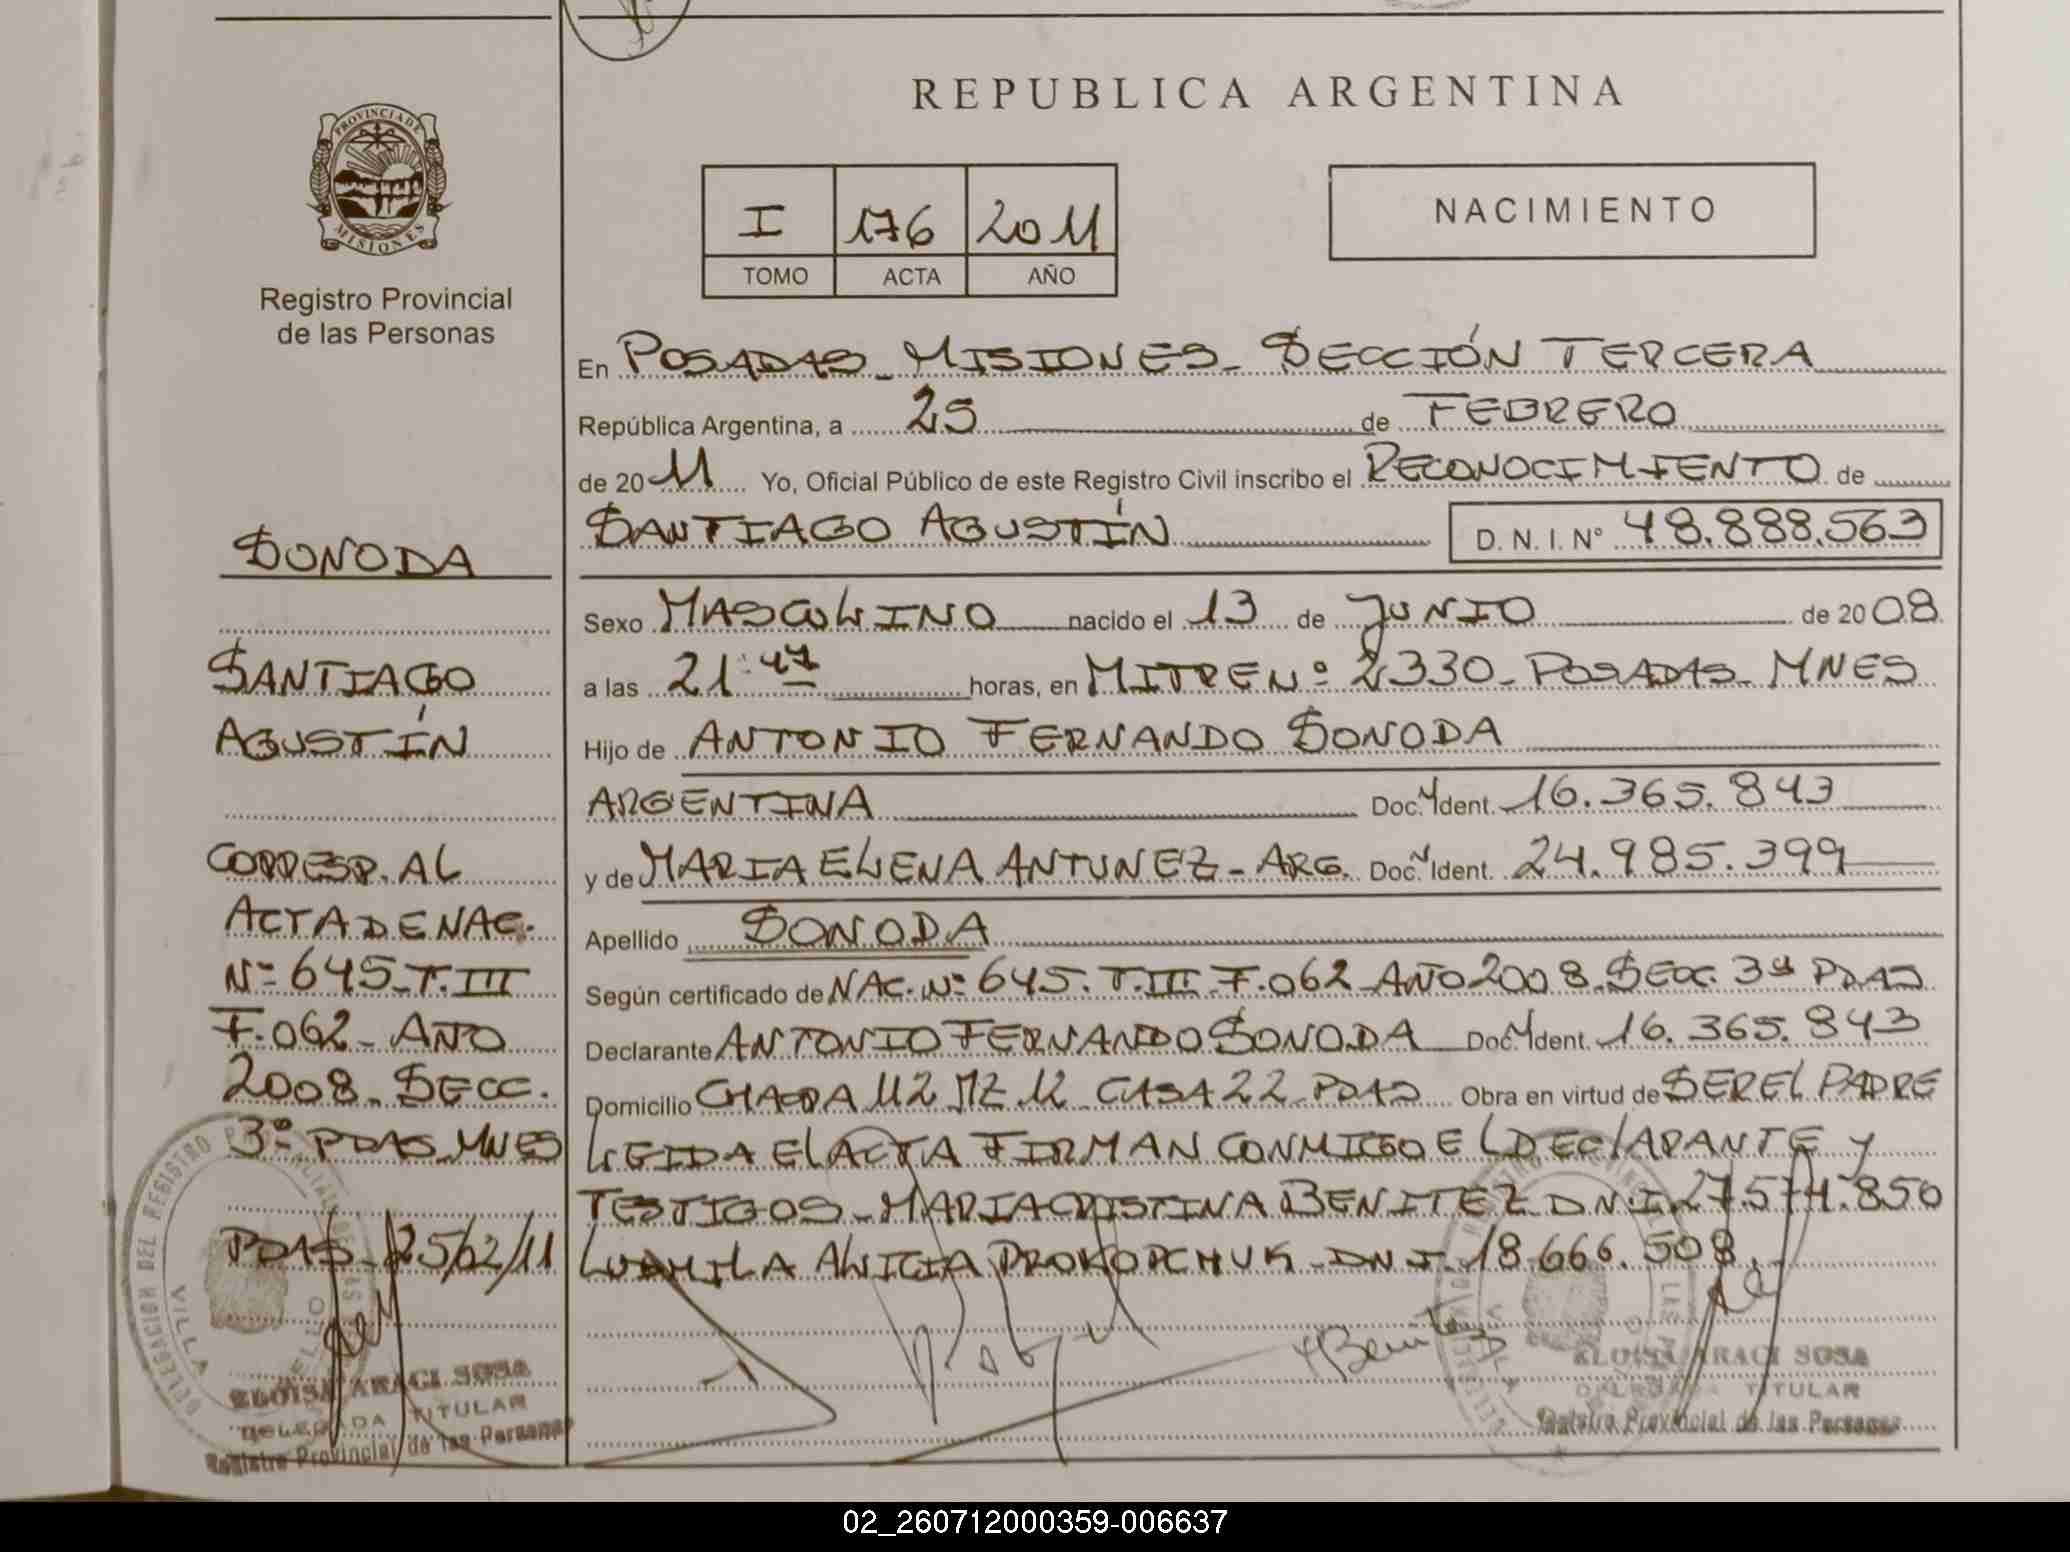 REPUBLICA ARGENTINA
PROVINCIA DE
MISIONES
Registro Provincial
de las Personas
I 176 2011
TOMO ACTA AÑO
NACIMIENTO
SONODA
SANTIAGO
AGUSTÍN
CORRESP. AL
ACTA DE NAC.
Nº 645_T.III
F.062_AÑO
2008_SECC.
3º PDAS_MNES
PDAS_25/02/11
ELOISA ARACI SOSA
DELEGADA TITULAR
Registro Provincial de las Personas
En POSADAS_MISIONES_SECCIÓN TERCERA
República Argentina, a 25 de FEBRERO
de 2011 Yo, Oficial Público de este Registro Civil inscribo el RECONOCIMIENTO de
SANTIAGO AGUSTÍN D. N. I. Nº 48.888.563
Sexo MASCULINO nacido el 13 de JUNIO de 2008
a las 21:47 horas, en MITRE Nº 2330_POSADAS_MNES
Hijo de ANTONIO FERNANDO SONODA
ARGENTINA Doc. Ident. 16.365.843
y de MARIA ELENA ANTUNEZ_ARG. Doc. Ident. 24.985.399
Apellido SONODA
Según certificado de NAC. Nº 645. T.III F.062_AÑO 2008.SECC. 3ª PDAS
Declarante ANTONIO FERNANDO SONODA Doc. Ident. 16.365.843
Domicilio CHACRA 112 MZ 12_CASA 22_PDAS Obra en virtud de SER EL PADRE
LEIDA EL ACTA FIRMAN CONMIGO EL DECLARANTE Y
TESTIGOS_MARIA CRISTINA BENITEZ D.N.I. 27.574.850
LUDMILA ALICIA PROKOPCHUK_DNI. 18.666.508.
ELOISA ARACI SOSA
DELEGADA TITULAR
Registro Provincial de las Personas
02_260712000359-006637